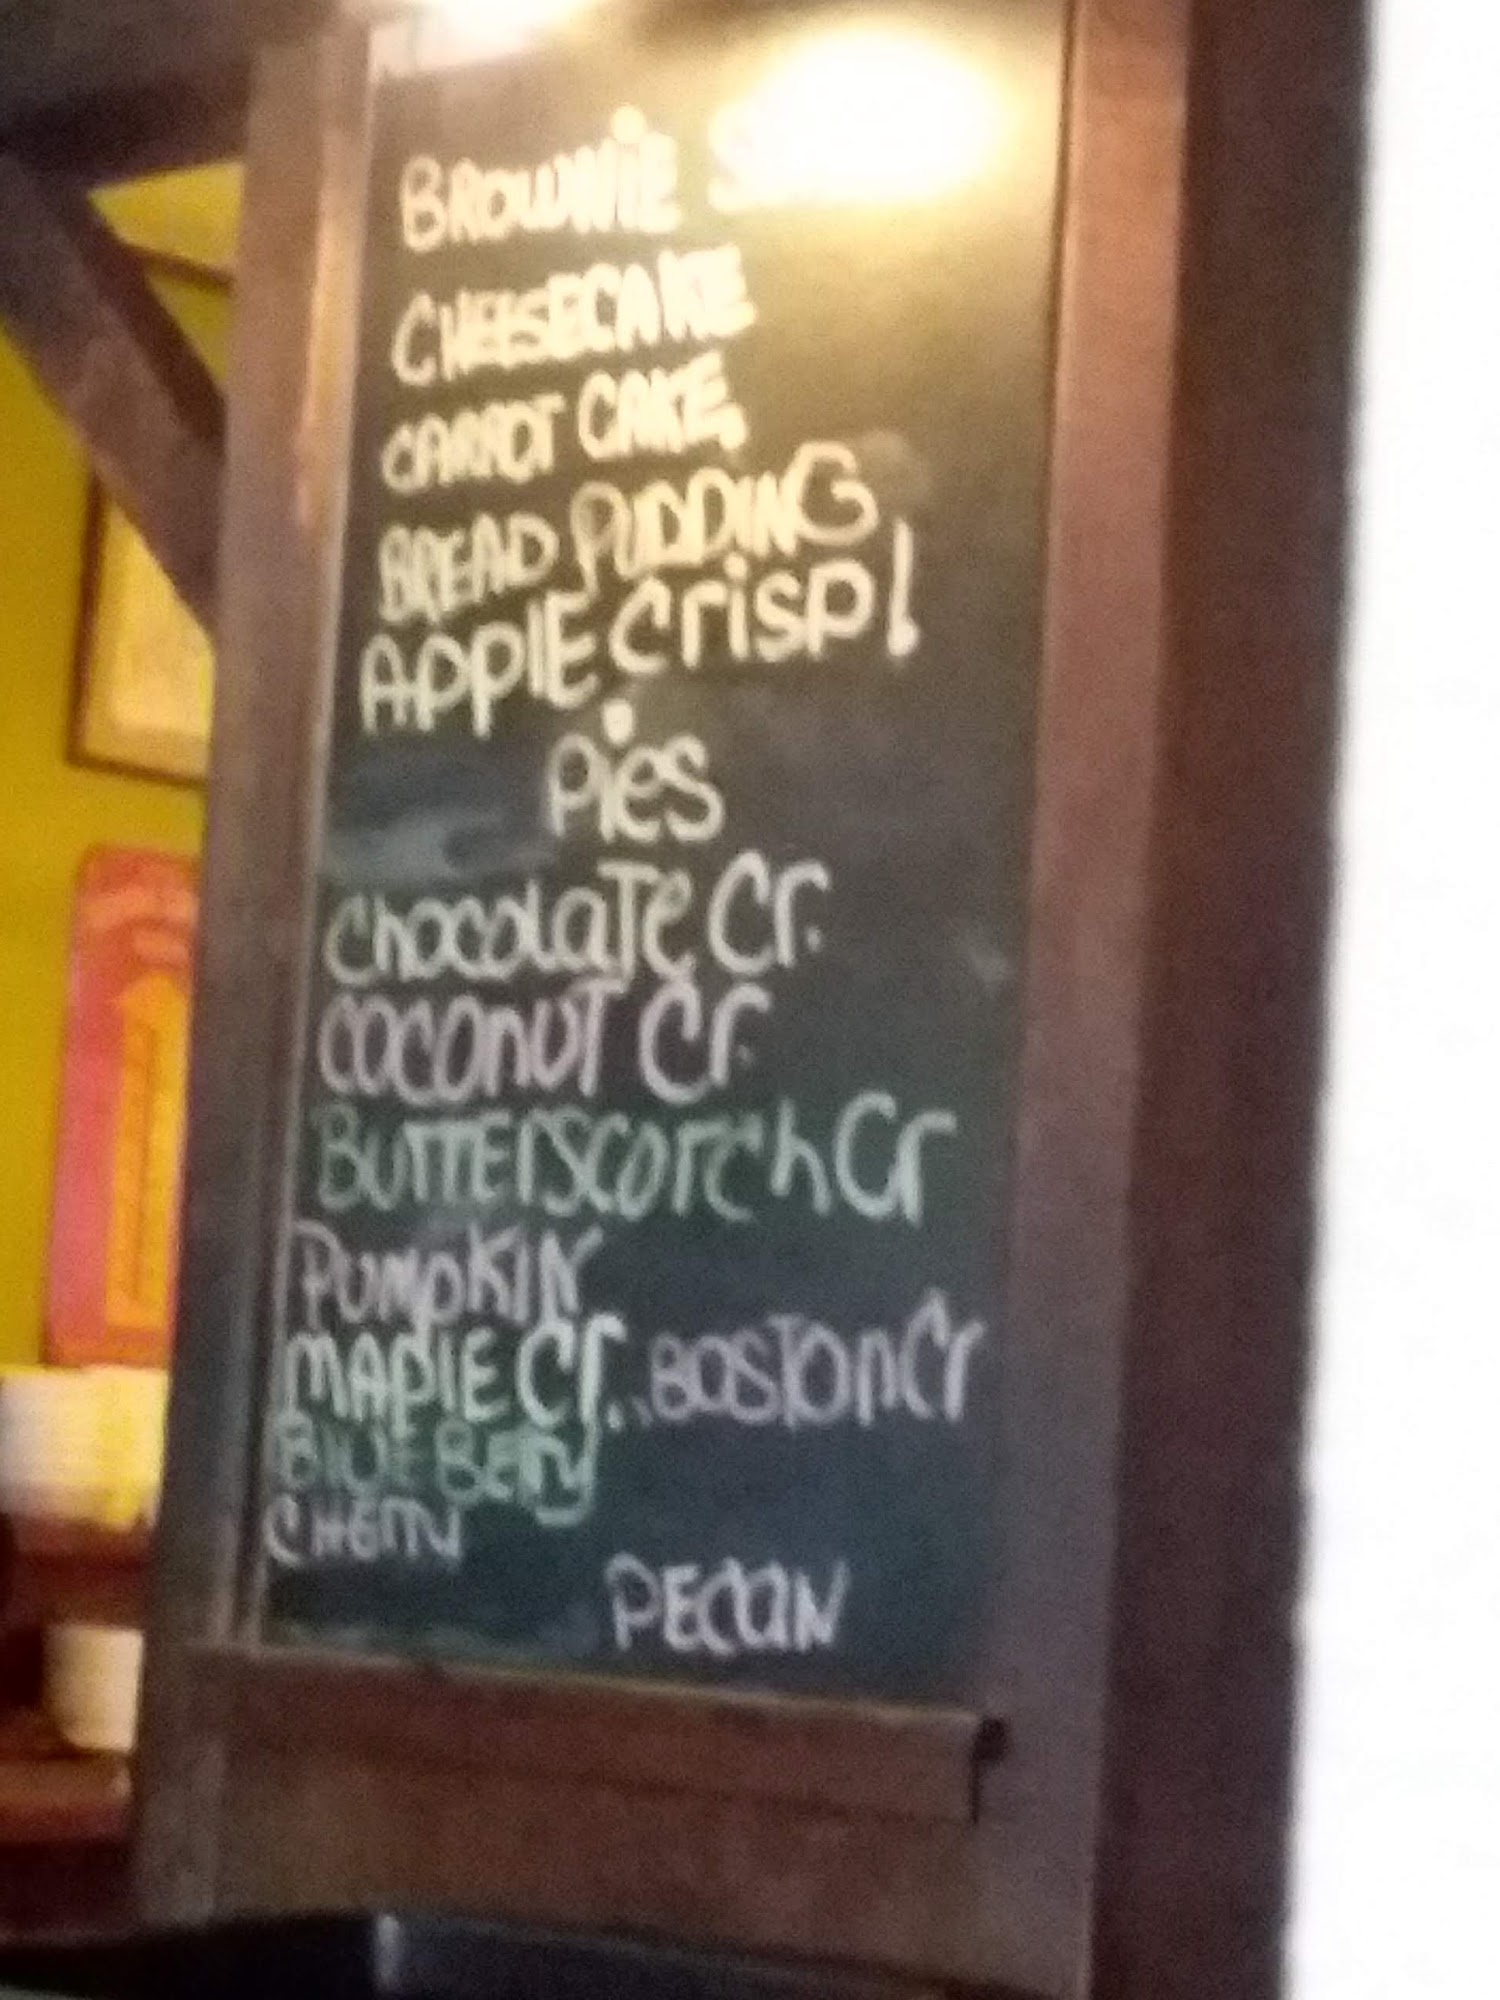 BROWNiE
CHEESECAKE
CARROT CAKE
BREAD PUDDING
APPlE Crisp!
Pies
ChocolaTe Cr.
COCOnUT Cr.
BUTTErSCOTCh Cr
PUmpKIN
MAPlE Cr... BOSTOn Cr
BlUE BErry
CHErry
PECAN